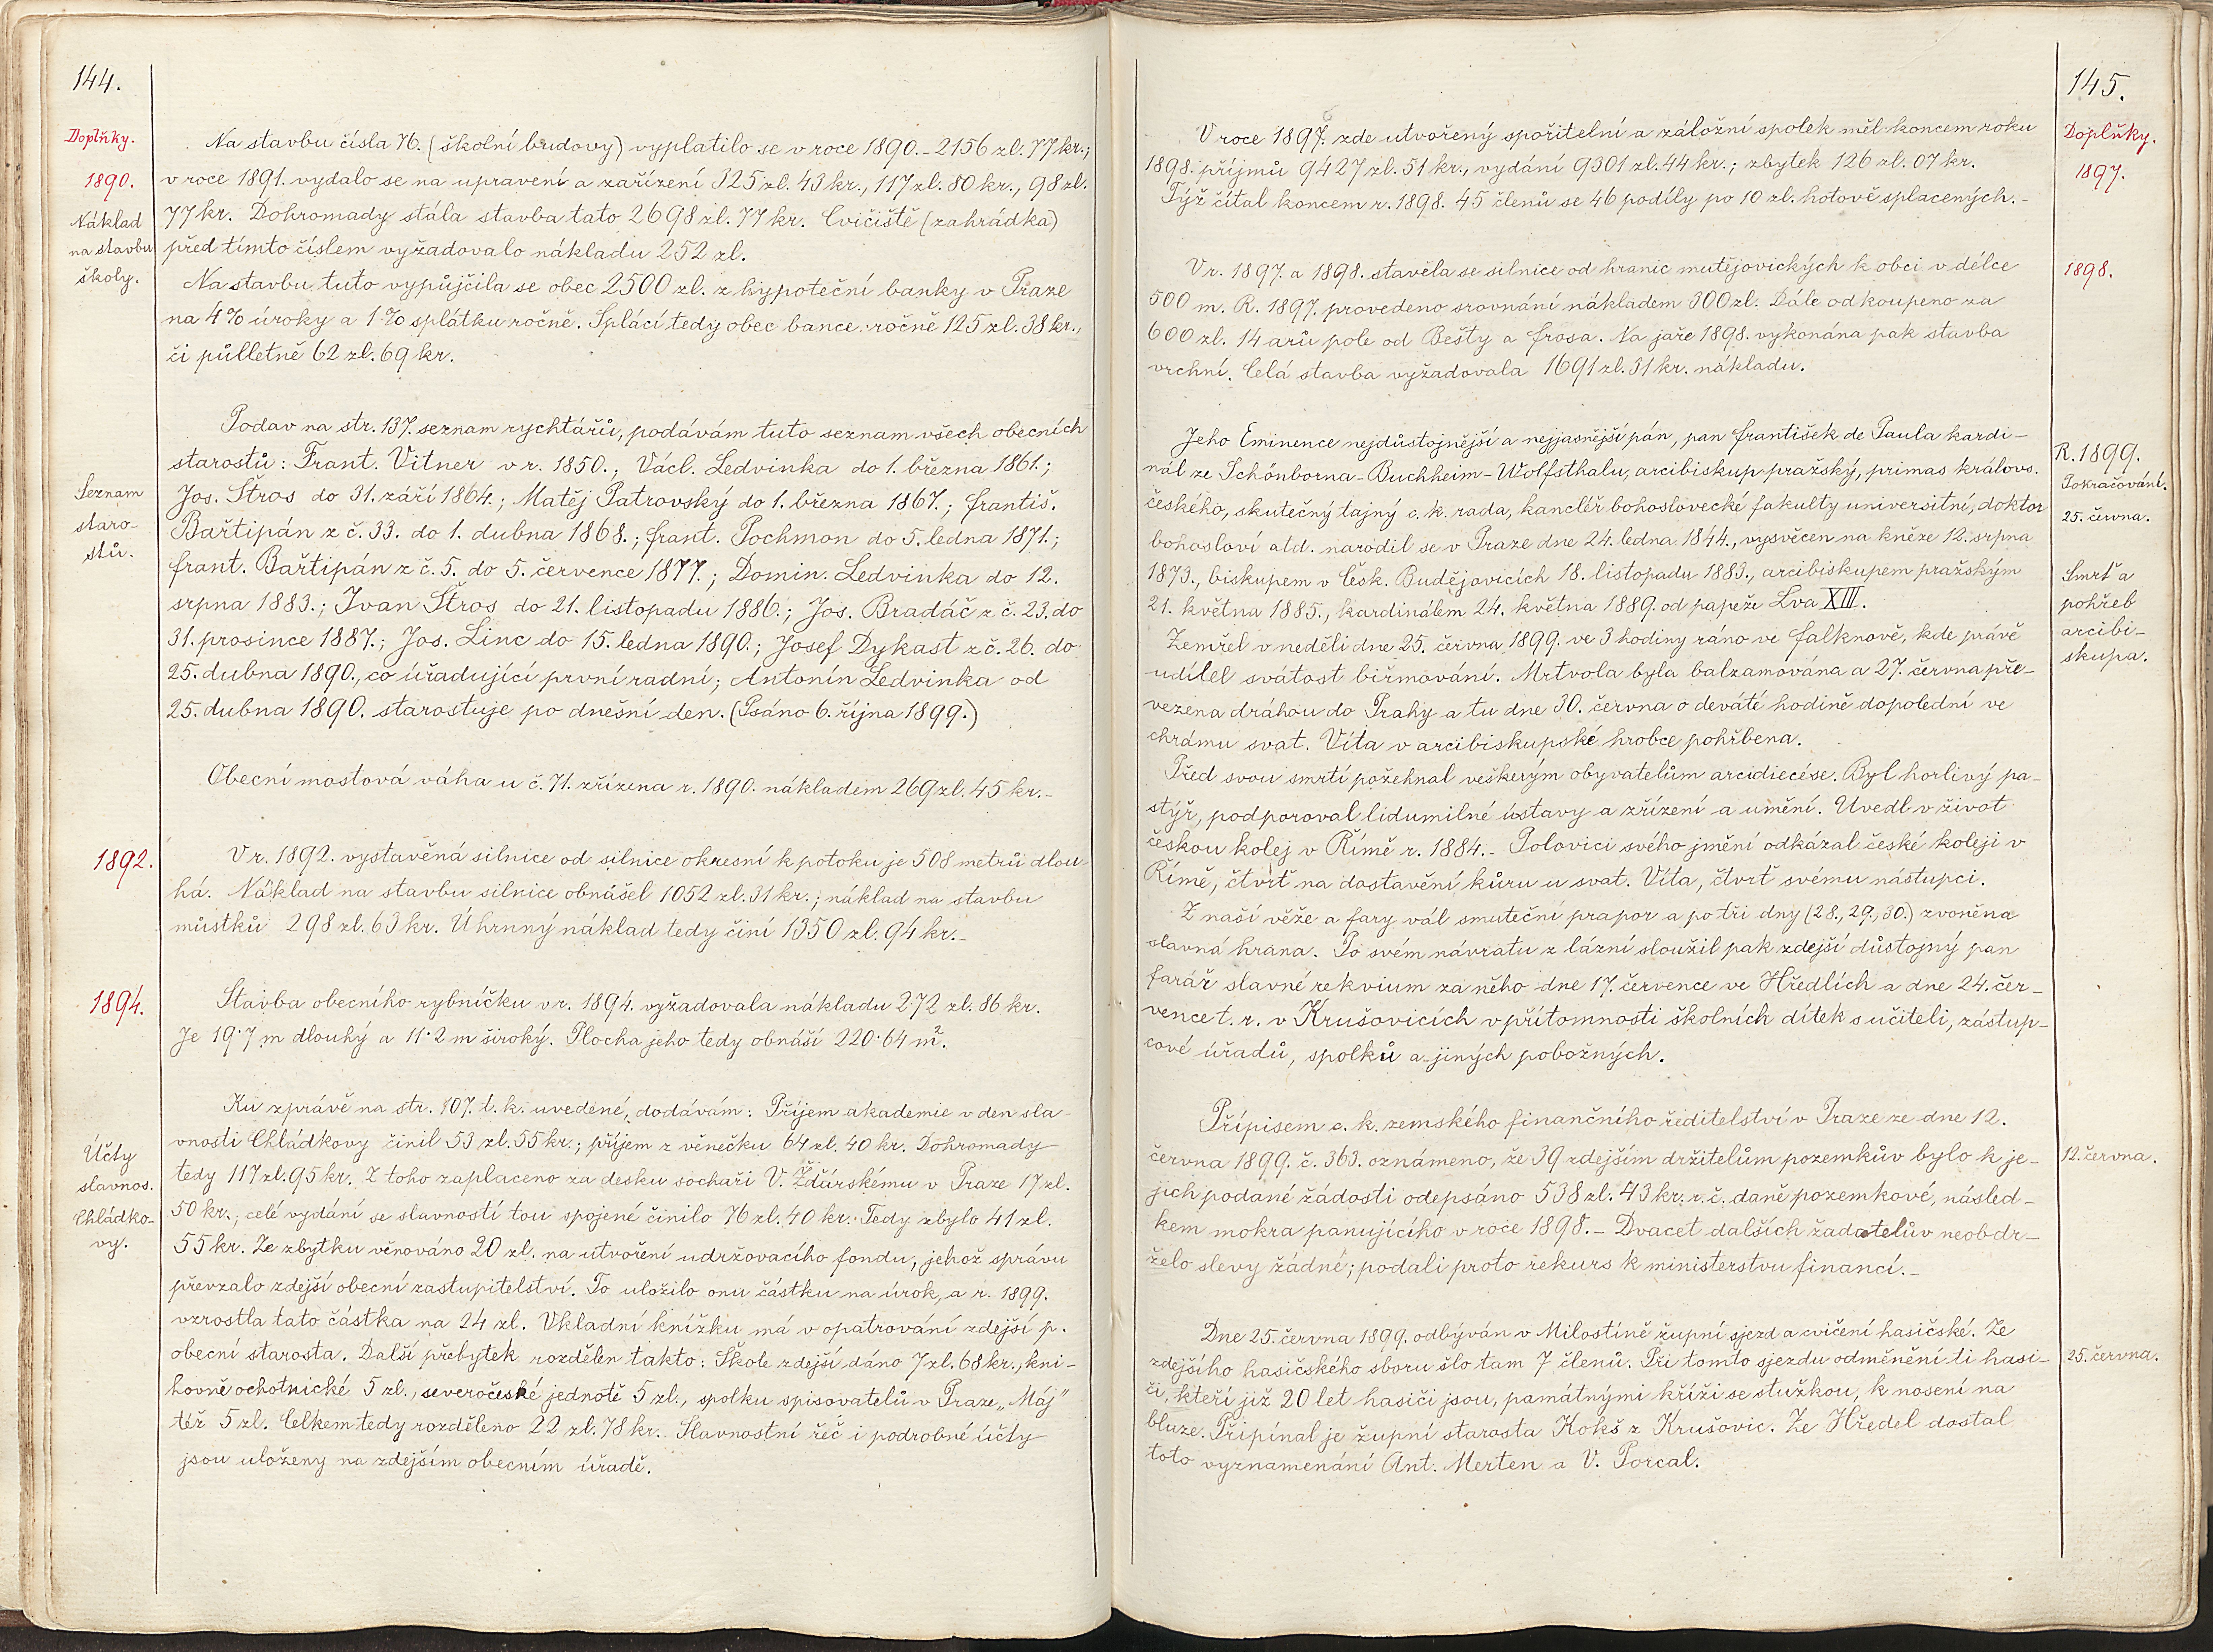 144.
Doplňky.
1890.
Náklad
na stavbu
školy.
Na stavbu čísla 76. (školní budovy) vyplatilo se v roce 1890. – 2156 zl. 77 kr.;
v roce 1891. vydalo se na upravení a zařízení 325 zl. 43 kr., 117 zl. 80 kr., 98 zl.
77 kr. Dohromady stála stavba tato 2698 zl. 77 kr. Cvičiště (zahrádka)
před tímto číslem vyžadovalo nákladu 252 zl.
Na stavbu tuto vypůjčila se obec 2500 zl. z hypoteční banky v Praze
na 4% úroky a 1% splátku ročně. Splácí tedy obec bance ročně 125 zl. 38 kr.,
či půlletně 62 zl. 69 kr.
Seznam
staro-
stů.
Podav na str. 137. seznam rychtářů, podávám tuto seznam všech obecních
starostů: Frant. Vitner v r. 1850.; Václ. Ledvinka do 1. března 1861.;
Jos. Štros do 31. září 1864.; Matěj Patrovský do 1. března 1867.; Františ.
Bařtipán z č. 33. do 1. dubna 1868.; Frant. Pochmon do 5. ledna 1871.;
Frant. Bařtipán z č. 5. do 5. července 1877.; Domin. Ledvinka do 12.
srpna 1883.; Ivan Štros do 21. listopadu 1886.; Jos. Bradáč z č. 23. do
31. prosince 1887.; Jos. Linc do 15. ledna 1890.; Josef Dykast z č. 26. do
25. dubna 1890., co úřadující první radní; Antonín Ledvinka od
25. dubna 1890. starostuje po dnešní den. (Psáno 6. října 1899.)
Obecní mostová váha u č. 71. zřízena r. 1890. nákladem 269 zl. 45 kr. –
1892.
V r. 1892. vystavěná silnice od silnice okresní k potoku je 508 metrů dlou-
há. Náklad na stavbu silnice obnášel 1052 zl. 31 kr.; náklad na stavbu
můstků 298 zl. 63 kr. Úhrnný náklad tedy činí 1350 zl. 94 kr. –
1894.
Stavba obecního rybníčku v r. 1894. vyžadovala nákladu 272 zl. 86 kr.
Je 19·7 m dlouhý a 11·2 m široký. Plocha jeho tedy obnáší 220·64 m².
Účty
slavnos.
Chládko-
vy.
Ku zprávě na str. 107. t. k. uvedené, dodávám: Příjem akademie v den sla-
vnosti Chládkovy činil 53 zl. 55 kr.; příjem z věnečku 64 zl. 40 kr. Dohromady
tedy 117 zl. 95 kr. Z toho zaplaceno za desku sochaři V. Žďárskému v Praze 17 zl.
50 kr.; celé vydání se slavností tou spojené činilo 76 zl. 40 kr. Tedy zbylo 41 zl.
55 kr. Ze zbytku věnováno 20 zl. na utvoření udržovacího fondu, jehož správu
převzalo zdejší obecní zastupitelství. To uložilo onu částku na úrok, a r. 1899.
vzrostla tato částka na 24 zl. Vkladní knížku má v opatrování zdejší p.
obecní starosta. Další přebytek rozdělen takto: Škole zdejší dáno 7 zl. 68 kr., kni-
hovně ochotnické 5 zl., severočeské jednotě 5 zl., spolku spisovatelů v Praze „Máj"
též 5 zl. Celkem tedy rozděleno 22 zl. 78 kr. Slavnostní řeč i podrobné účty
jsou uloženy na zdejším obecním úřadě.
145.
Doplňky.
1897.
V roce 1897. zde utvořený spořitelní a záložní spolek měl koncem roku
1898. příjmů 9427 zl. 51 kr., vydání 9301 zl. 44 kr.; zbytek 126 zl. 07 kr.
Týž čítal koncem r. 1898. 45 členů se 46 podíly po 10 zl. hotově splacených. –
1898.
V r. 1897. a 1898. stavěla se silnice od hranic mutějovických k obci v délce
500 m. R. 1897. provedeno srovnání nákladem 300 zl. Dále odkoupeno za
600 zl. 14 arů pole od Bešty a Frosa. Na jaře 1898. vykonána pak stavba
vrchní. Celá stavba vyžadovala 1691 zl. 31 kr. nákladu.
R. 1899.
Pokračování.
25. června.
Smrť a
pohřeb
arcibi-
skupa.
Jeho Eminence nejdůstojnější a nejjasnější pán, pan František de Paula kardi-
nál ze Schönborna-Buchheim-Wolfsthalu, arcibiskup pražský, primas královs.
českého, skutečný tajný c. k. rada, kancléř bohoslovecké fakulty universitní, doktor
bohosloví atd. narodil se v Praze dne 24. ledna 1844., vysvěcen na kněze 12. srpna
1873., biskupem v Česk. Budějovicích 18. listopadu 1883., arcibiskupem pražským
21. května 1885., kardinálem 24. května 1889. od papeže Lva XIII.
Zemřel v neděli dne 25. června 1899. ve 3 hodiny ráno ve Falknově, kde právě
udílel svátost biřmování. Mrtvola byla balzamována a 27. června pře-
vezena dráhou do Prahy a tu dne 30. června o deváté hodině dopolední ve
chrámu svat. Víta v arcibiskupské hrobce pohřbena.
Před svou smrtí požehnal veškerým obyvatelům arcidiecése. Byl horlivý pa-
stýř, podporoval lidumilné ústavy a zřízení a umění. Uvedl v život
českou kolej v Římě r. 1884. – Polovici svého jmění odkázal české koleji v
Římě, čtvrť na dostavění kůru u svat. Víta, čtvrť svému nástupci.
Z naší věže a fary vál smuteční prapor a po tři dny (28., 29., 30.) zvoněna
slavná hrana. Po svém návratu z lázní sloužil pak zdejší důstojný pan
farář slavné rekvium za něho dne 17. července ve Hředlích a dne 24. čer-
vence t. r. v Krušovicích v přítomnosti školních dítek s učiteli, zástup-
cové úřadů, spolků a jiných pobožných.
12. června.
Přípisem c. k. zemského finančního ředitelství v Praze ze dne 12.
června 1899. č. 363. oznámeno, že 39 zdejším držitelům pozemkův bylo k je-
jich podané žádosti odepsáno 538 zl. 43 kr. r. č. daně pozemkové, násled-
kem mokra panujícího v roce 1898. – Dvacet dalších žadatelův neobdr-
želo slevy žádné; podali proto rekurs k ministerstvu financí. –
25. června.
Dne 25. června 1899. odbýván v Milostíně župní sjezd a cvičení hasičské. Ze
zdejšího hasičského sboru šlo tam 7 členů. Při tomto sjezdu odměněni ti hasi-
či, kteří již 20 let hasiči jsou, památnými kříži se stužkou, k nosení na
bluze. Připínal je župní starosta Kokš z Krušovic. Ze Hředel dostal
toto vyznamenání Ant. Merten a V. Porcal.